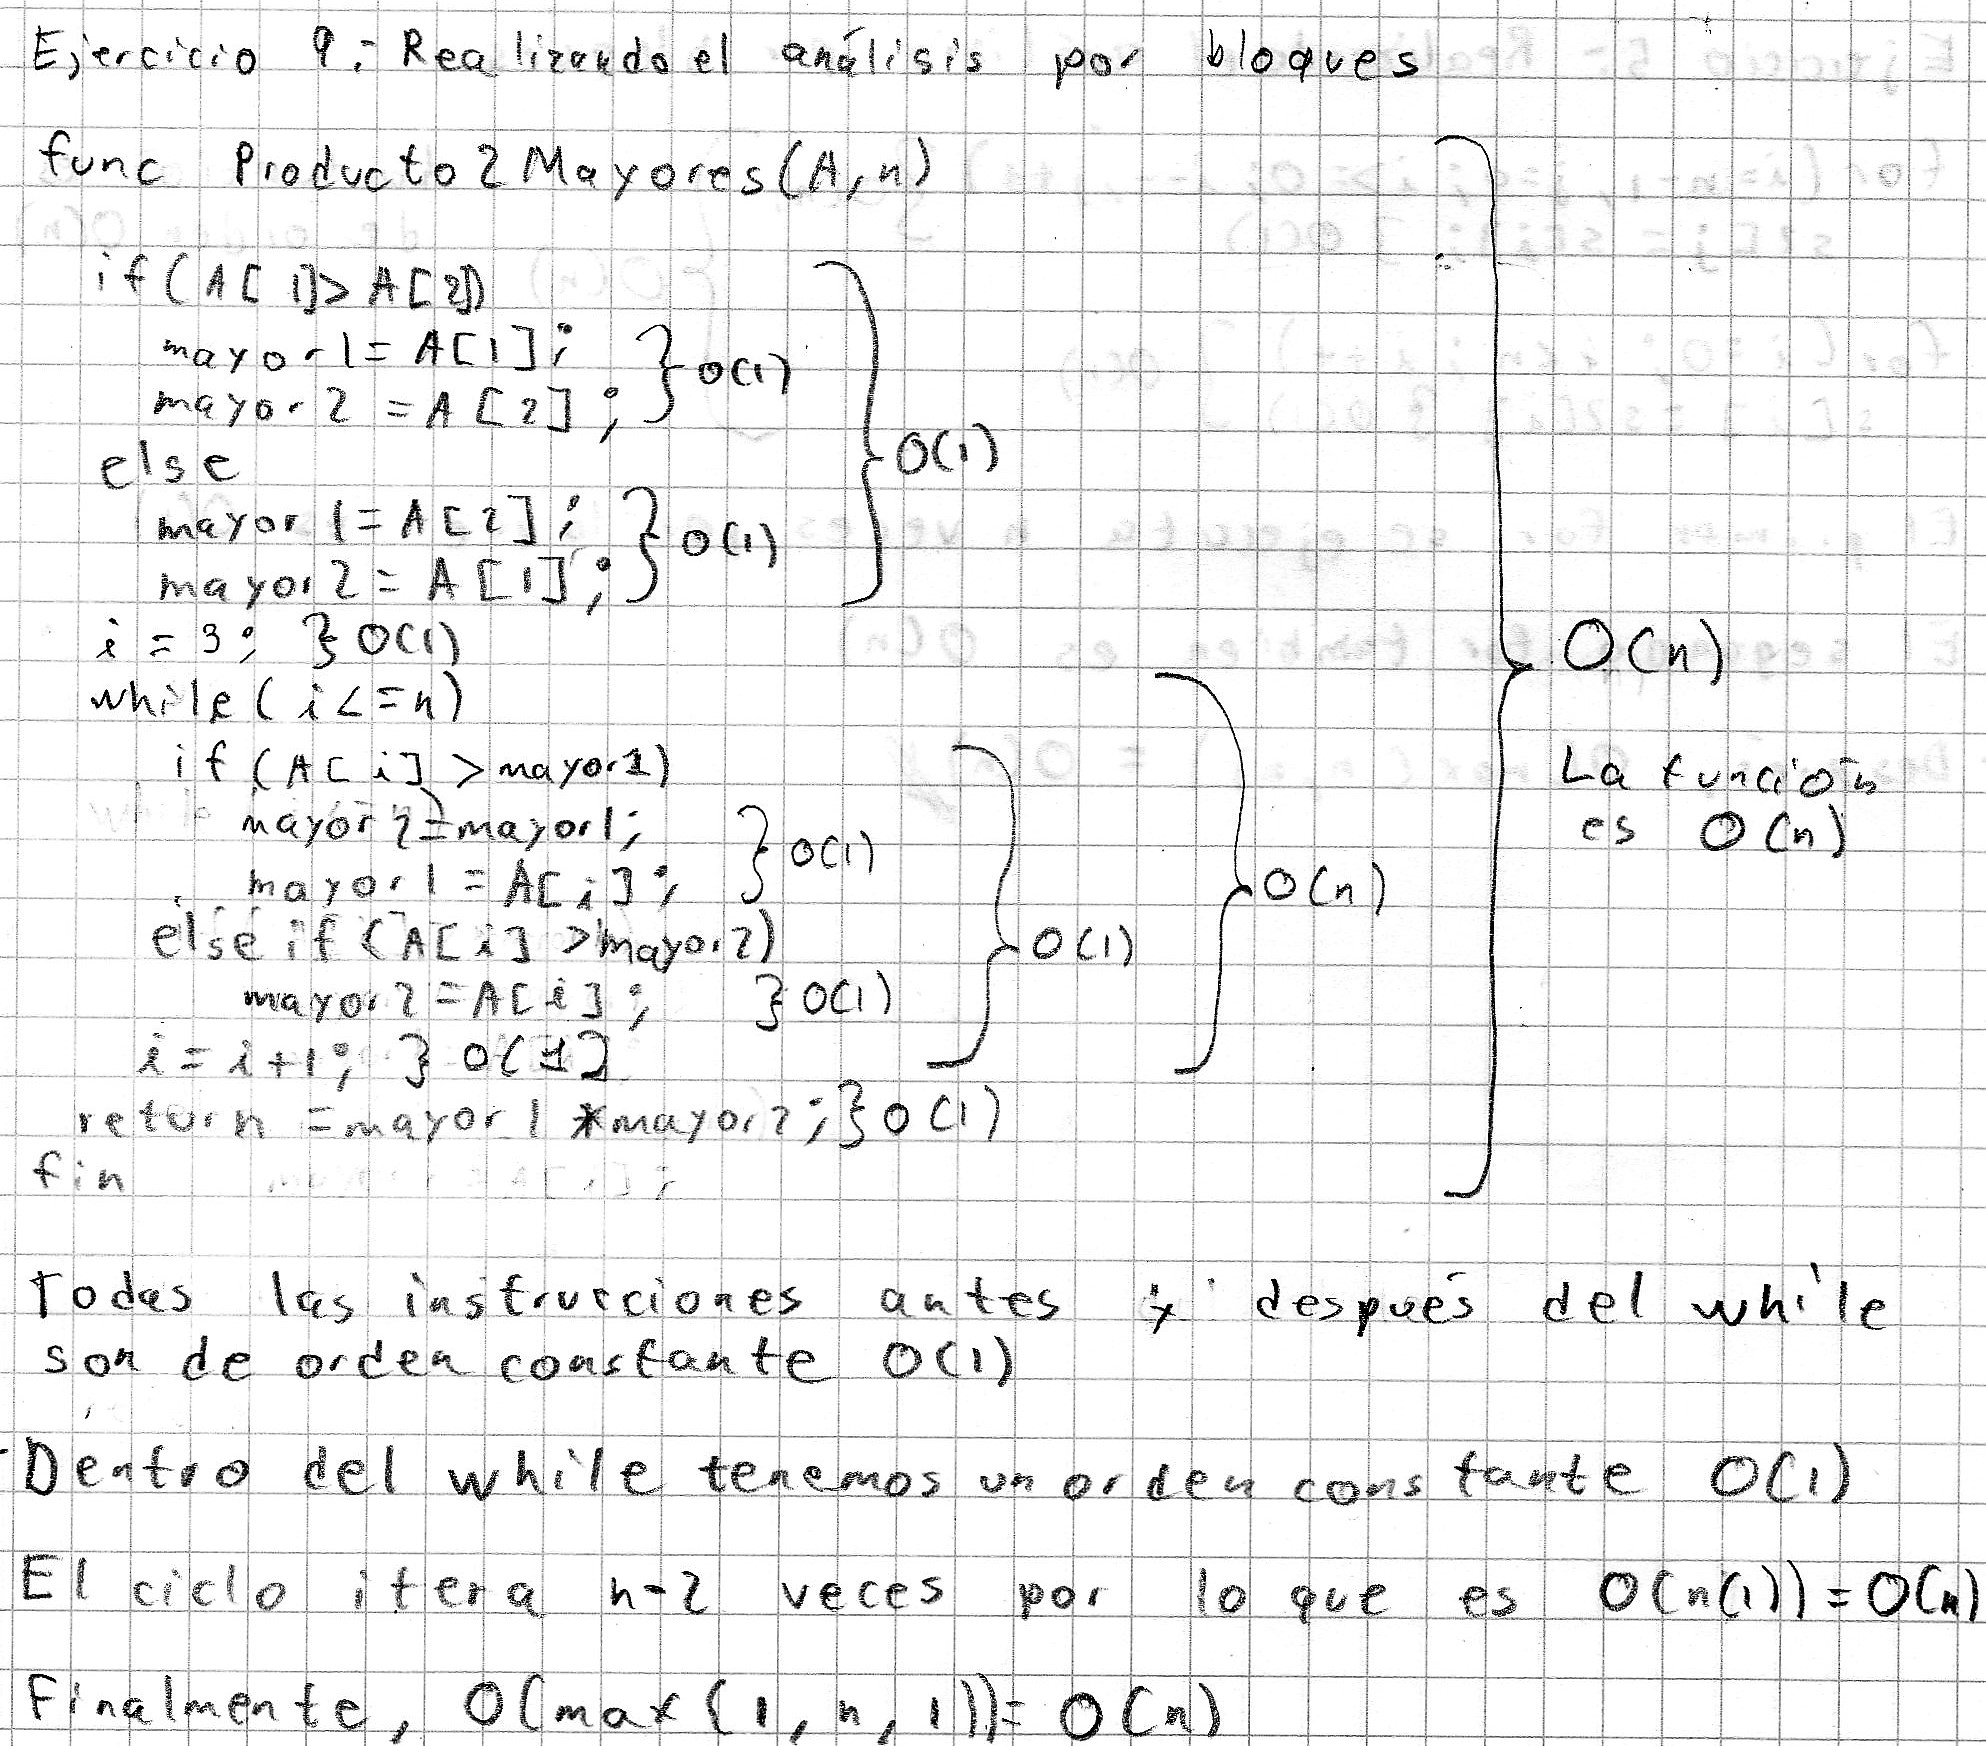 Ejercicio 9: Realizando el análisis por bloques
func Producto2Mayores(A,n)
if(A[1]>A[2])
mayor1=A[1];
mayor2=A[2]; } O(1)
else } O(1)
mayor1=A[2];
mayor2=A[1]; } O(1)
i=3; } O(1)
} O(n)
while(i<=n)
if(A[i]>mayor1)
La función
mayor2=mayor1;
es O(n)
mayor1=A[i]; } O(1)
} O(n)
else if(A[i]>mayor2) } O(1)
mayor2=A[i]; } O(1)
i=i+1; } O(1]
return =mayor1*mayor2; } O(1)
fin
Todas las instrucciones antes y después del while
son de orden constante O(1)
Dentro del while tenemos un orden constante O(1)
El ciclo itera n-2 veces por lo que es O(n(1))=O(n)
Finalmente, O(max(1,n,1))=O(n)